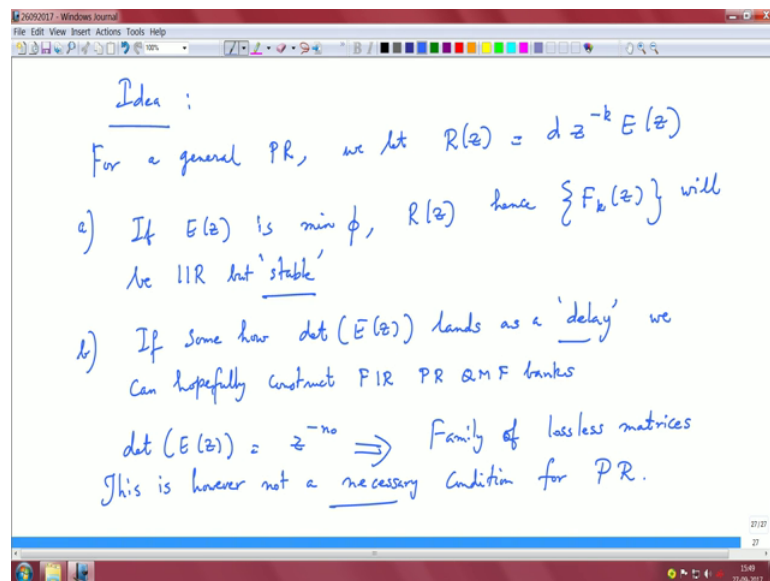 26092017 - Windows Journal
File Edit View Insert Actions Tools Help
100%
B I
Idea :
For a general PR, we let R(z) = d z^{-k} E(z)
a) If E(z) is min ϕ, R(z) hence {F_k(z)} will
be IIR but 'stable'
b) If some how det (E(z)) lands as a 'delay' we
can hopefully construct FIR PR QMF banks
det (E(z)) = z^{-n_0} ⟹ Family of lossless matrices
This is however not a necessary condition for PR.
27/27
27
15:49
27-09-2017